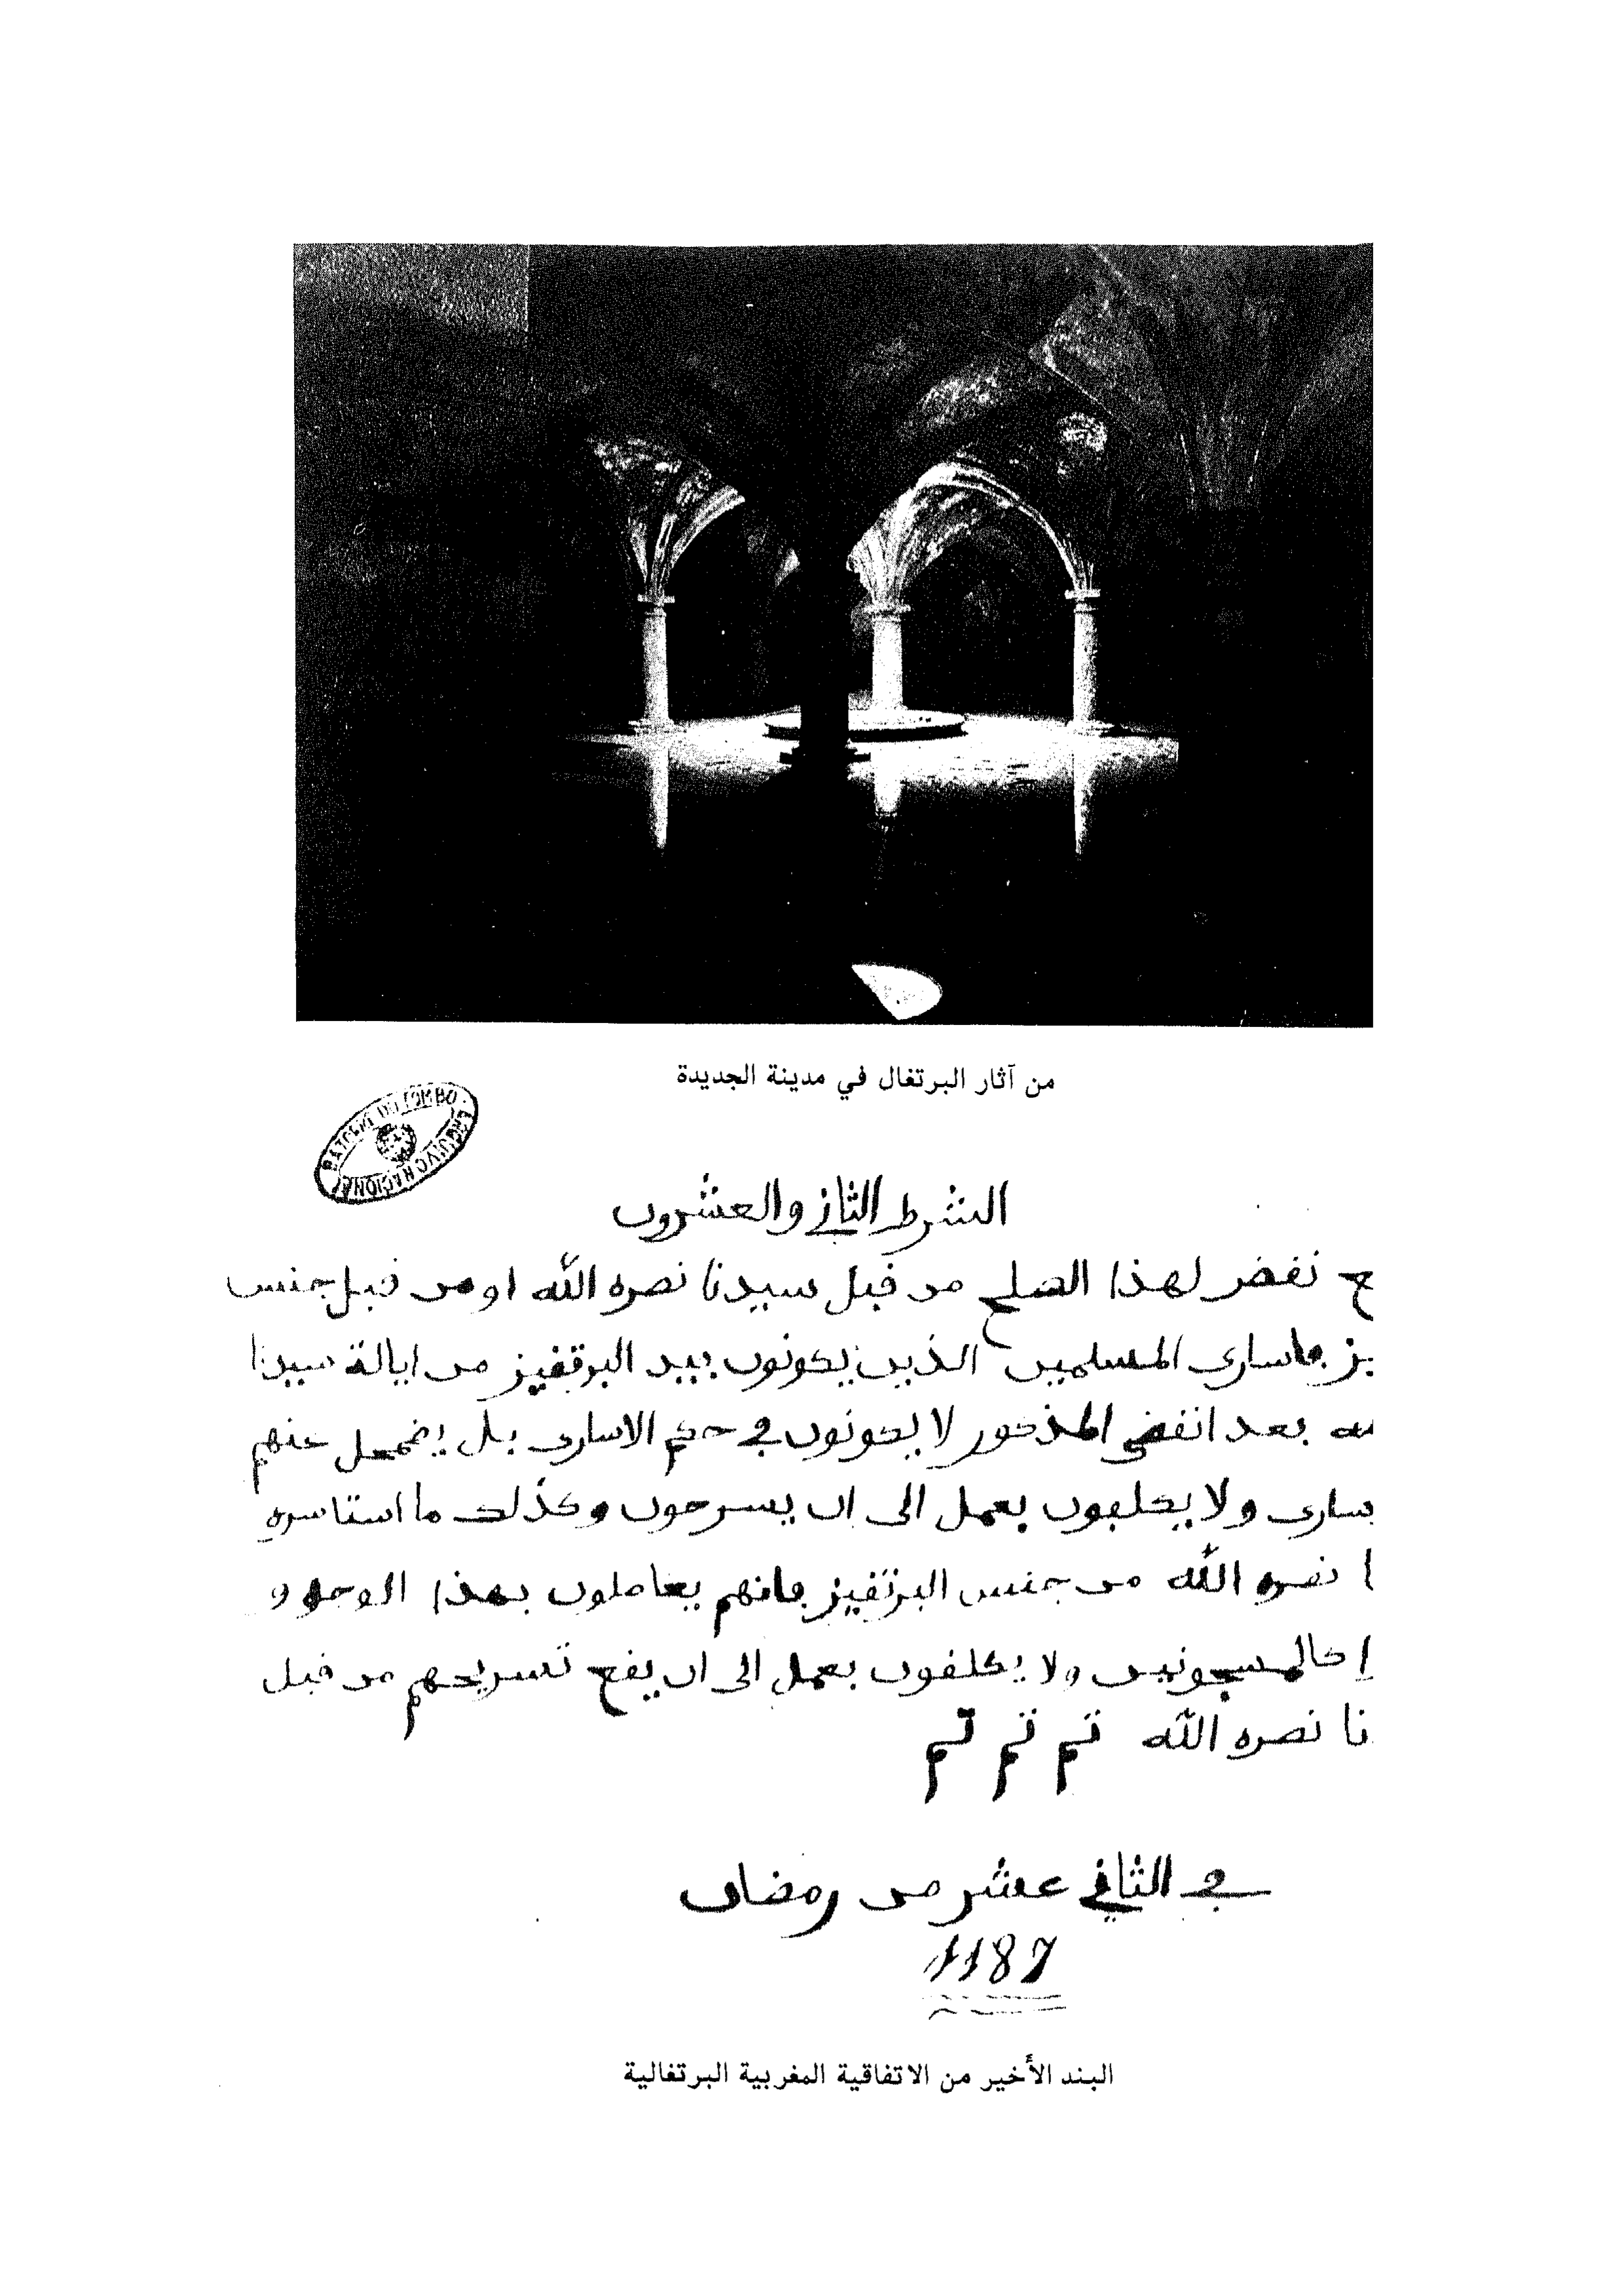 من آثار البرتغال في مدينة الجديدة
ARQUIVO NACIONAL DA TORRE DO TOMBO
الشرط الثاني والعشرون
ع نقض لهذا الصلح من قبل سيدنا نصره الله او من قبل جنس
يز فاسارى المسلمين الذين يكونون بيد البرتقيز من ايالة سيدنا
ـه بعد انقضى المذكور لا يكونون في حكم الاسارى بل يضمحل عنهم
سارى ولا يكلفون بعمل الى ان يسرحون وكذلك ما استاسره
ا نصره الله من جنس البرتقيز فانهم يعاملون بهذا الوجه و
ا كالمسجونين ولا يكلفون بعمل الى ان يقع تسريحهم من قبل
نا نصره الله تم تم تم
في الثاني عشر من رمضان
1187
البند الأخير من الاتفاقية المغربية البرتغالية